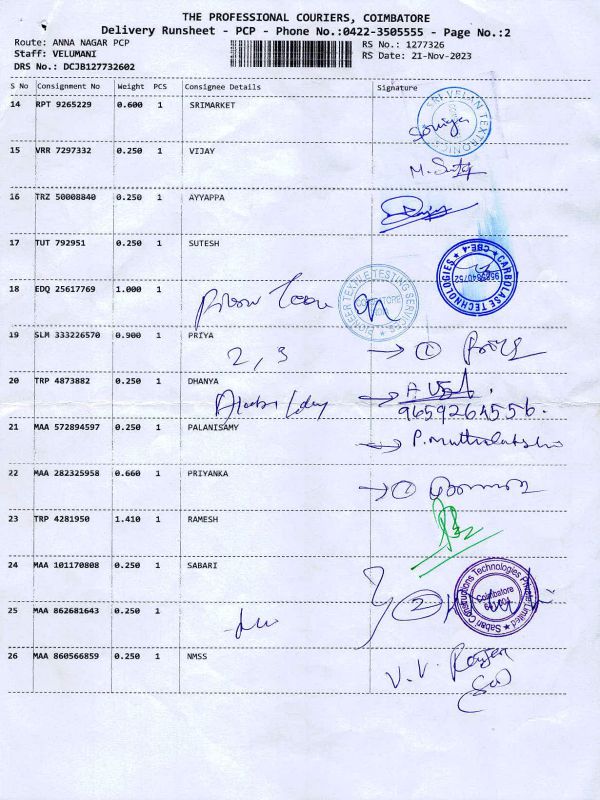 THE PROFESSIONAL COURIERS, COIMBATORE
Delivery Runsheet - PCP - Phone No.:0422-3505555 - Page No.:2
Route: ANNA NAGAR PCP
Staff: VELUMANI
DRS No.: DCJB127732602
RS No.: 1277326
RS Date: 21-Nov-2023
S No Consignment No Weight PCS Consignee Details Signature
14 RPT 9265229 0.600 1 SRIMARKET
SRI VELAN TEXTRONICS
15 VRR 7297332 0.250 1 VIJAY
16 TRZ 50008840 0.250 1 AYYAPPA
17 TUT 792951 0.250 1 SUTESH
CARBOLASE TECHNOLOGIES * CBE-4
18 EDQ 25617769 1.000 1
PIONEER TEXTILE TESTING SERVICES
19 SLM 333226570 0.900 1 PRIYA
2, 3 → 1
20 TRP 4873882 0.250 1 DHANYA
9659264556.
21 MAA 572894597 0.250 1 PALANISAMY
→ P. Muthulakshmi
22 MAA 282325958 0.660 1 PRIYANKA
→ 1
23 TRP 4281950 1.410 1 RAMESH
24 MAA 101170808 0.250 1 SABARI
Technologies Private Limited
Coimbatore
25 MAA 862681643 0.250 1
2
26 MAA 860566859 0.250 1 NMSS
V. V.